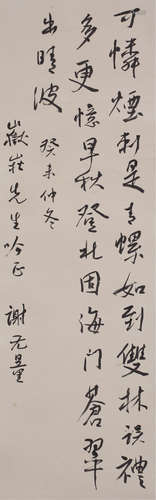 可憐煙刺是青螺如到雙林誤禮
多更憶早秋登北固海門蒼翠
出晴波
癸未仲冬
嶽莊先生吟正 謝无量